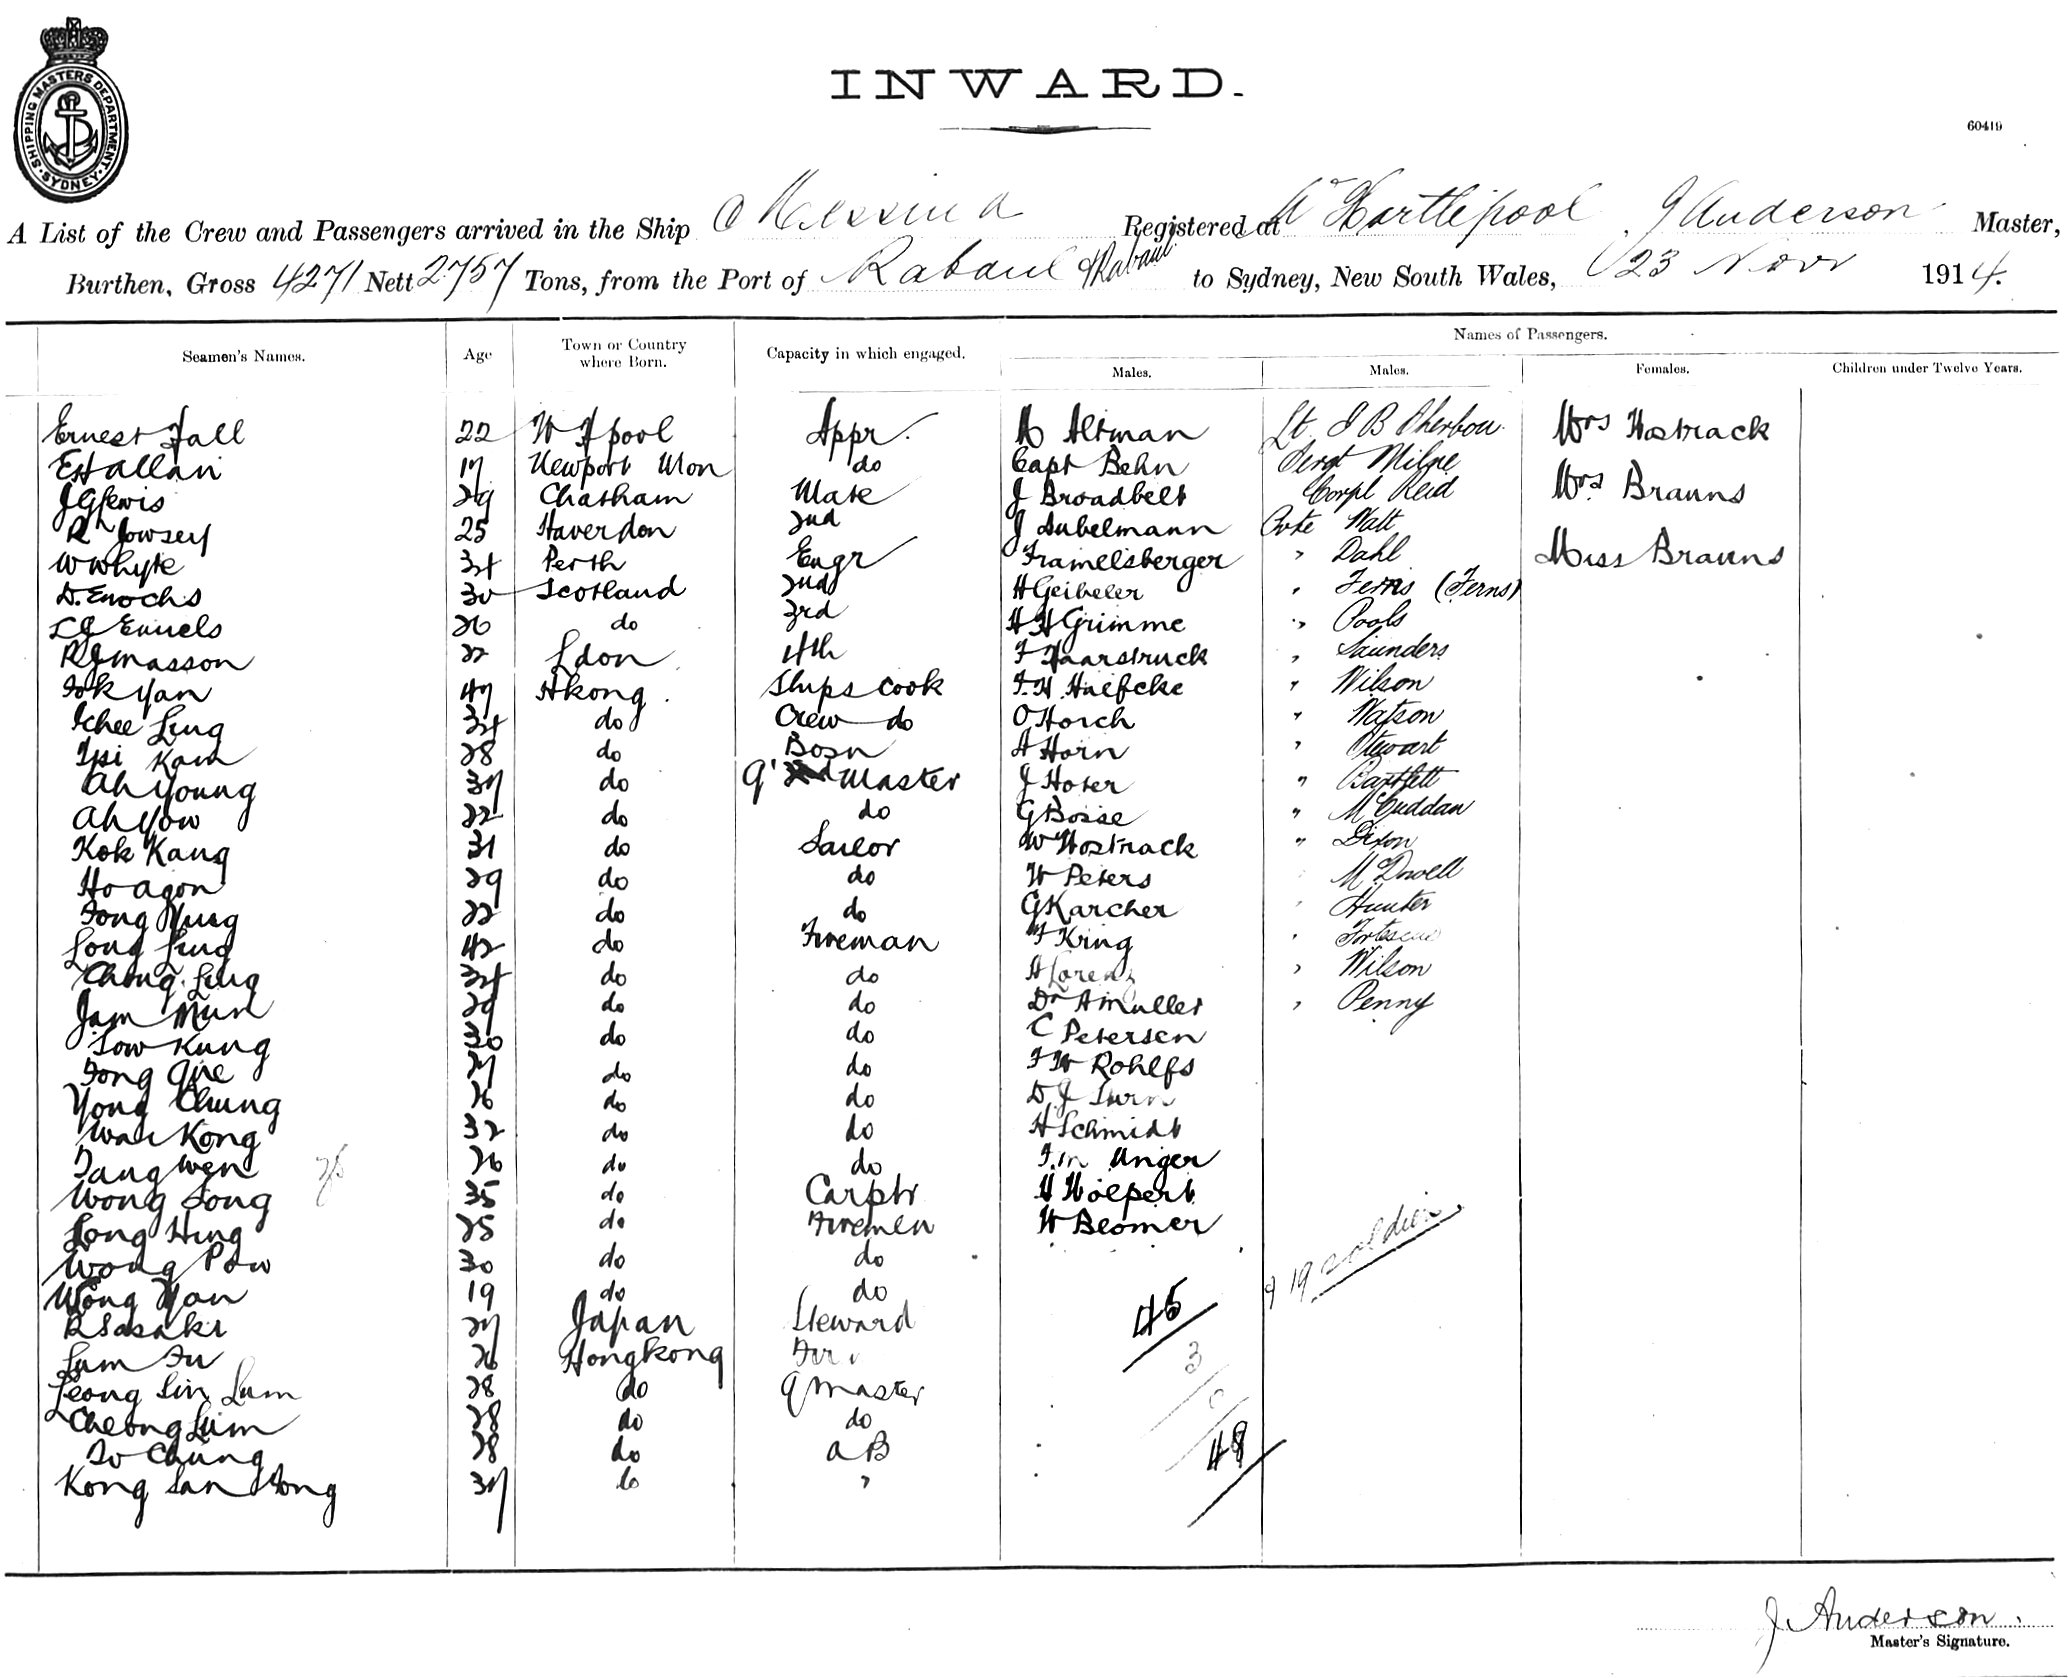 SHIPPING MASTERS DEPARTMENT
SYDNEY
INWARD.
60419
A List of the Crew and Passengers arrived in the Ship Messina Registered at W Hartlepool J Anderson Master,
Burthen, Gross 4271 Nett 2757 Tons, from the Port of Rabaul & Rabaul to Sydney, New South Wales, 23 Novr 1914.
Names of Passengers.
Seamen's Names. Age Town or Country where Born. Capacity in which engaged. Males. Males. Females. Children under Twelve Years.
Ernest Hall 22 W Hpool Appr. Altman Lt. Mrs Hostrack
E H allan 17 Newport Mon do Capt Behn Sergt Milne
J G Lewis 29 Chatham Mate J Broadbelt Corpl Reid Mrs Brauns
R Jowsey 25 Haverdon 2nd J Aubelmann Pvte Watt
W Whyte 34 Perth Engr Framelsberger " Dahl Miss Brauns
D. Enochs 30 Scotland 2nd H Geibeler " Ferns (Ferns)
26 do 3rd H H Grimme " Pools
R J Masson 22 Ldon 4th F Haarstruck " Saunders
Fok Yan 47 Hkong Ships cook F. H. Haefcke " Wilson
Chee Ling 34 do Crew do O Horch " Watson
Kam 28 do Bosn A Horn " Stewart
Ah Young 37 do Q' Master J Hoter " Bartlett
Ah Yow 22 do do G Bosse " McCuddan
Kok Kang 31 do Sailor W Hostrack " Dixon
Ho agon 29 do do W Peters McDowell
Fong Yung 22 do do G Karcher " Hunter
Long Ling 42 do Fireman F King " Fortescue
Chong Ling 34 do do A Lorenz " Wilson
Jam Mun 29 do do Dr A Muller " Penny
Low Kung 30 do do C Petersen
Fong Que 27 do do F W Rohlfs
Yong Chung 26 do do D. J
Wan Kong 32 do do H Schmidt
Tang Wen 26 do do F. M Unger
Wong Song 35 do Carptr H Wolpert
Long Hing 25 do Firemen W Beomer
Wong Pow 30 do do
Wong Yan 19 do do
R Sasaki 27 Japan Steward
Lam Fu 26 Hongkong Fir
Leong Sin Lum 28 do Q Master
Cheong Lum 28 do do
To Chung 28 do AB
Kong San Fong 37 do "
& 19 soldiers
45
3
48
J Anderson.
Master's Signature.